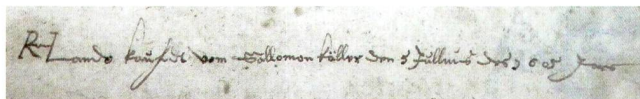 Lands kaufdt vom Sallomon Köller den 5 Jullius des 1605 Jars